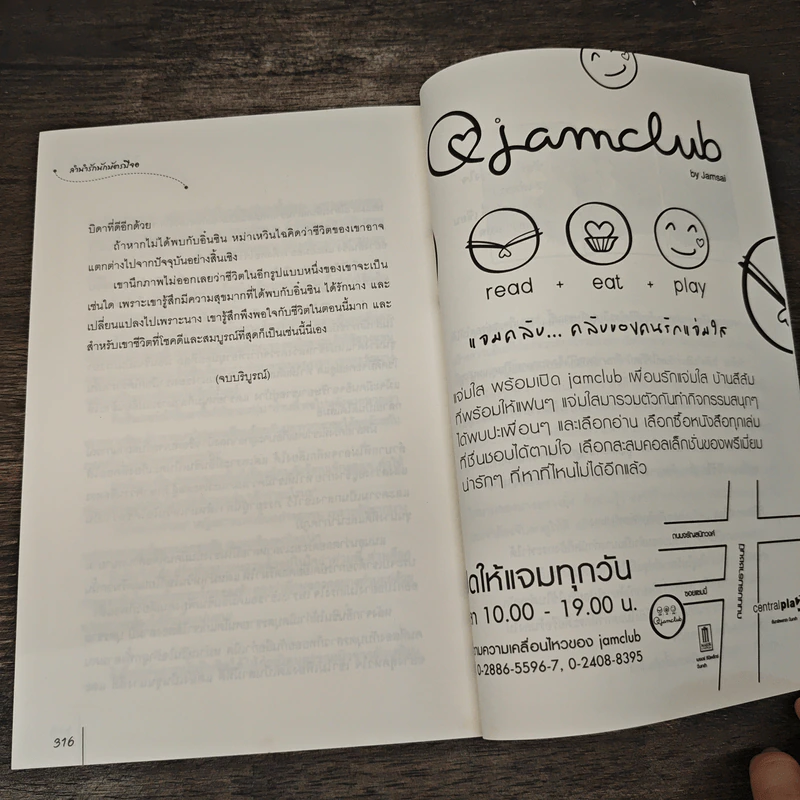 ลำนำรักนักษัตรปีจอ
บิดาที่ดีอีกด้วย
ถ้าหากไม่ได้พบกับอิ๋นซิน หม่าเหวินไฉคิดว่าชีวิตของเขาอาจ
แตกต่างไปจากปัจจุบันอย่างสิ้นเชิง
เขานึกภาพไม่ออกเลยว่าชีวิตในอีกรูปแบบหนึ่งของเขาจะเป็น
เช่นใด เพราะเขารู้สึกมีความสุขมากที่ได้พบกับอิ๋นซิน ได้รักนาง และ
เปลี่ยนแปลงไปเพราะนาง เขารู้สึกพึงพอใจกับชีวิตในตอนนี้มาก และ
สำหรับเขาชีวิตที่โชคดีและสมบูรณ์ที่สุดก็เป็นเช่นนี้นี่เอง
(จบบริบูรณ์)
316
@jamclub
by Jamsai
read + eat + play
แจมคลับ... คลับของคนรักแจ่มใส
แจ่มใส พร้อมเปิด jamclub เพื่อนรักแจ่มใส บ้านสีส้ม
ที่พร้อมให้แฟนๆ แจ่มใสมารวมตัวกันทำกิจกรรมสนุกๆ
ได้พบปะเพื่อนๆ และเลือกอ่าน เลือกซื้อหนังสือทุกเล่ม
ที่ชื่นชอบได้ตามใจ เลือกสะสมคอลเล็กชั่นของพรีเมี่ยม
น่ารักๆ ที่หาที่ไหนไม่ได้อีกแล้ว
ให้แจมทุกวัน
10.00 - 19.00 น.
ความเคลื่อนไหวของ jamclub
0-2886-5596-7, 0-2408-8395
ถนนจรัญสนิทวงศ์
ถนนบรมราชชนนี
ซอยแซมมี่
@jamclub
central